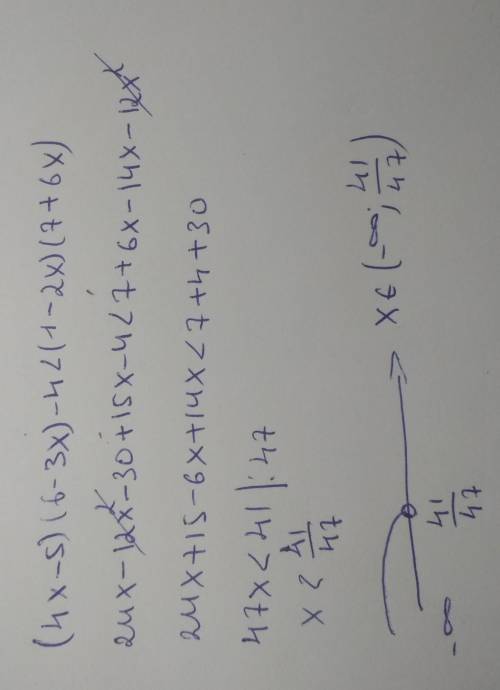 (4x-5)(6-3x)-4<(1-2x)(7+6x)
24x-12x²-30+15x-4<7+6x-14x-12x²
24x+15-6x+14x<7+4+30
47x<41|:47
x<41/47
-∞ 41/47 x∈(-∞; 41/47)